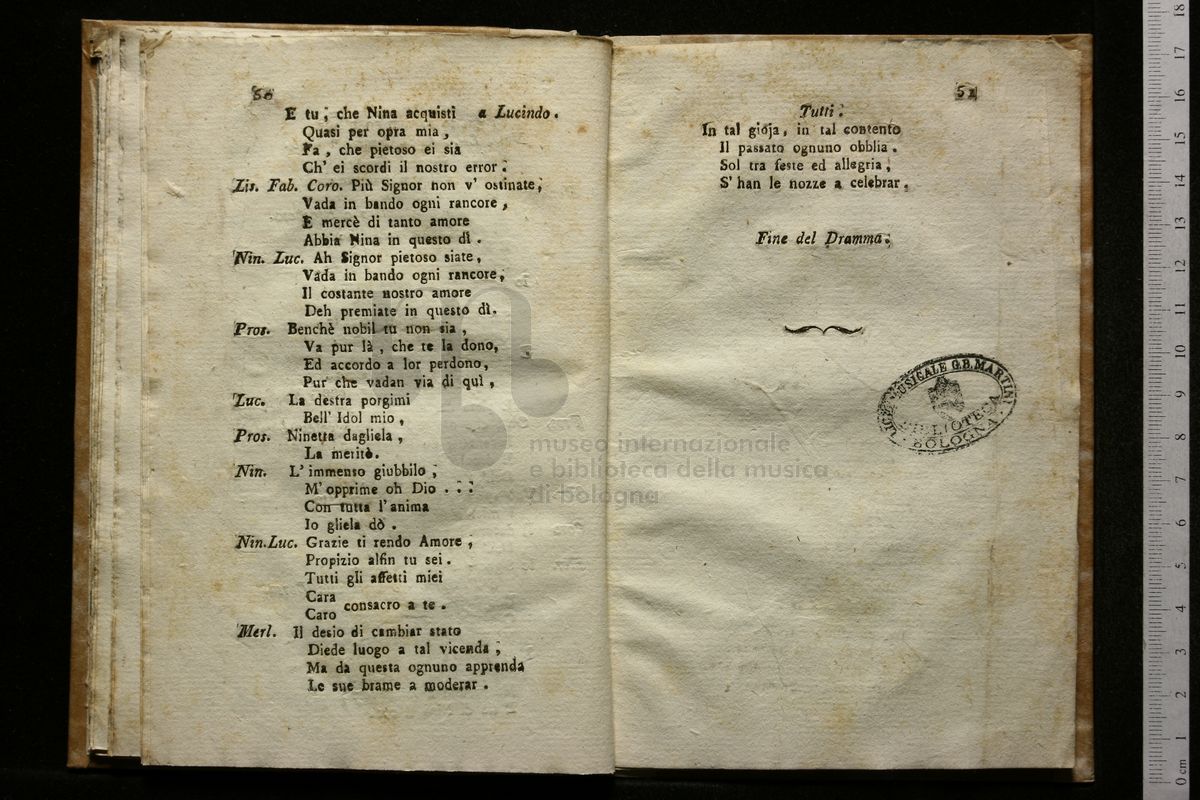 50
E tu, che Nina acquisti a Lucindo.
Quasi per opra mia,
Fa, che pietoso ei sia
Ch' ei scordi il nostro error.
Lis. Fab. Coro. Più Signor non v' ostinate,
Vada in bando ogni rancore,
E mercè di tanto amore
Abbia Nina in questo dì.
Nin. Luc. Ah Signor pietoso siate,
Vada in bando ogni rancore,
Il costante nostro amore
Deh premiate in questo dì.
Pros. Benchè nobil tu non sia,
Va pur là, che te la dono,
Ed accordo a lor perdono,
Pur che vadan via di quì,
Luc. La destra porgimi
Bell' Idol mio,
Pros. Ninetta dagliela,
La meritò.
Nin. L' immenso giubbilo,
M' opprime oh Dio . . .
Con tutta l' anima
Io gliela dò.
Nin. Luc. Grazie ti rendo Amore,
Propizio alfin tu sei.
Tutti gli affetti miei
Cara
consacro a te.
Caro
Merl. Il desio di cambiar stato
Diede luogo a tal vicenda,
Ma da questa ognuno apprenda
Le sue brame a moderar.
51
Tutti.
In tal gioja, in tal contento
Il passato ognuno obblia.
Sol tra feste ed allegria,
S' han le nozze a celebrar.
Fine del Dramma.
MUSICALE G.B. MARTINI
BIBLIOTECA
BOLOGNA
museo internazionale
e biblioteca della musica
di bologna
0 cm 1 2 3 4 5 6 7 8 9 10 11 12 13 14 15 16 17 18